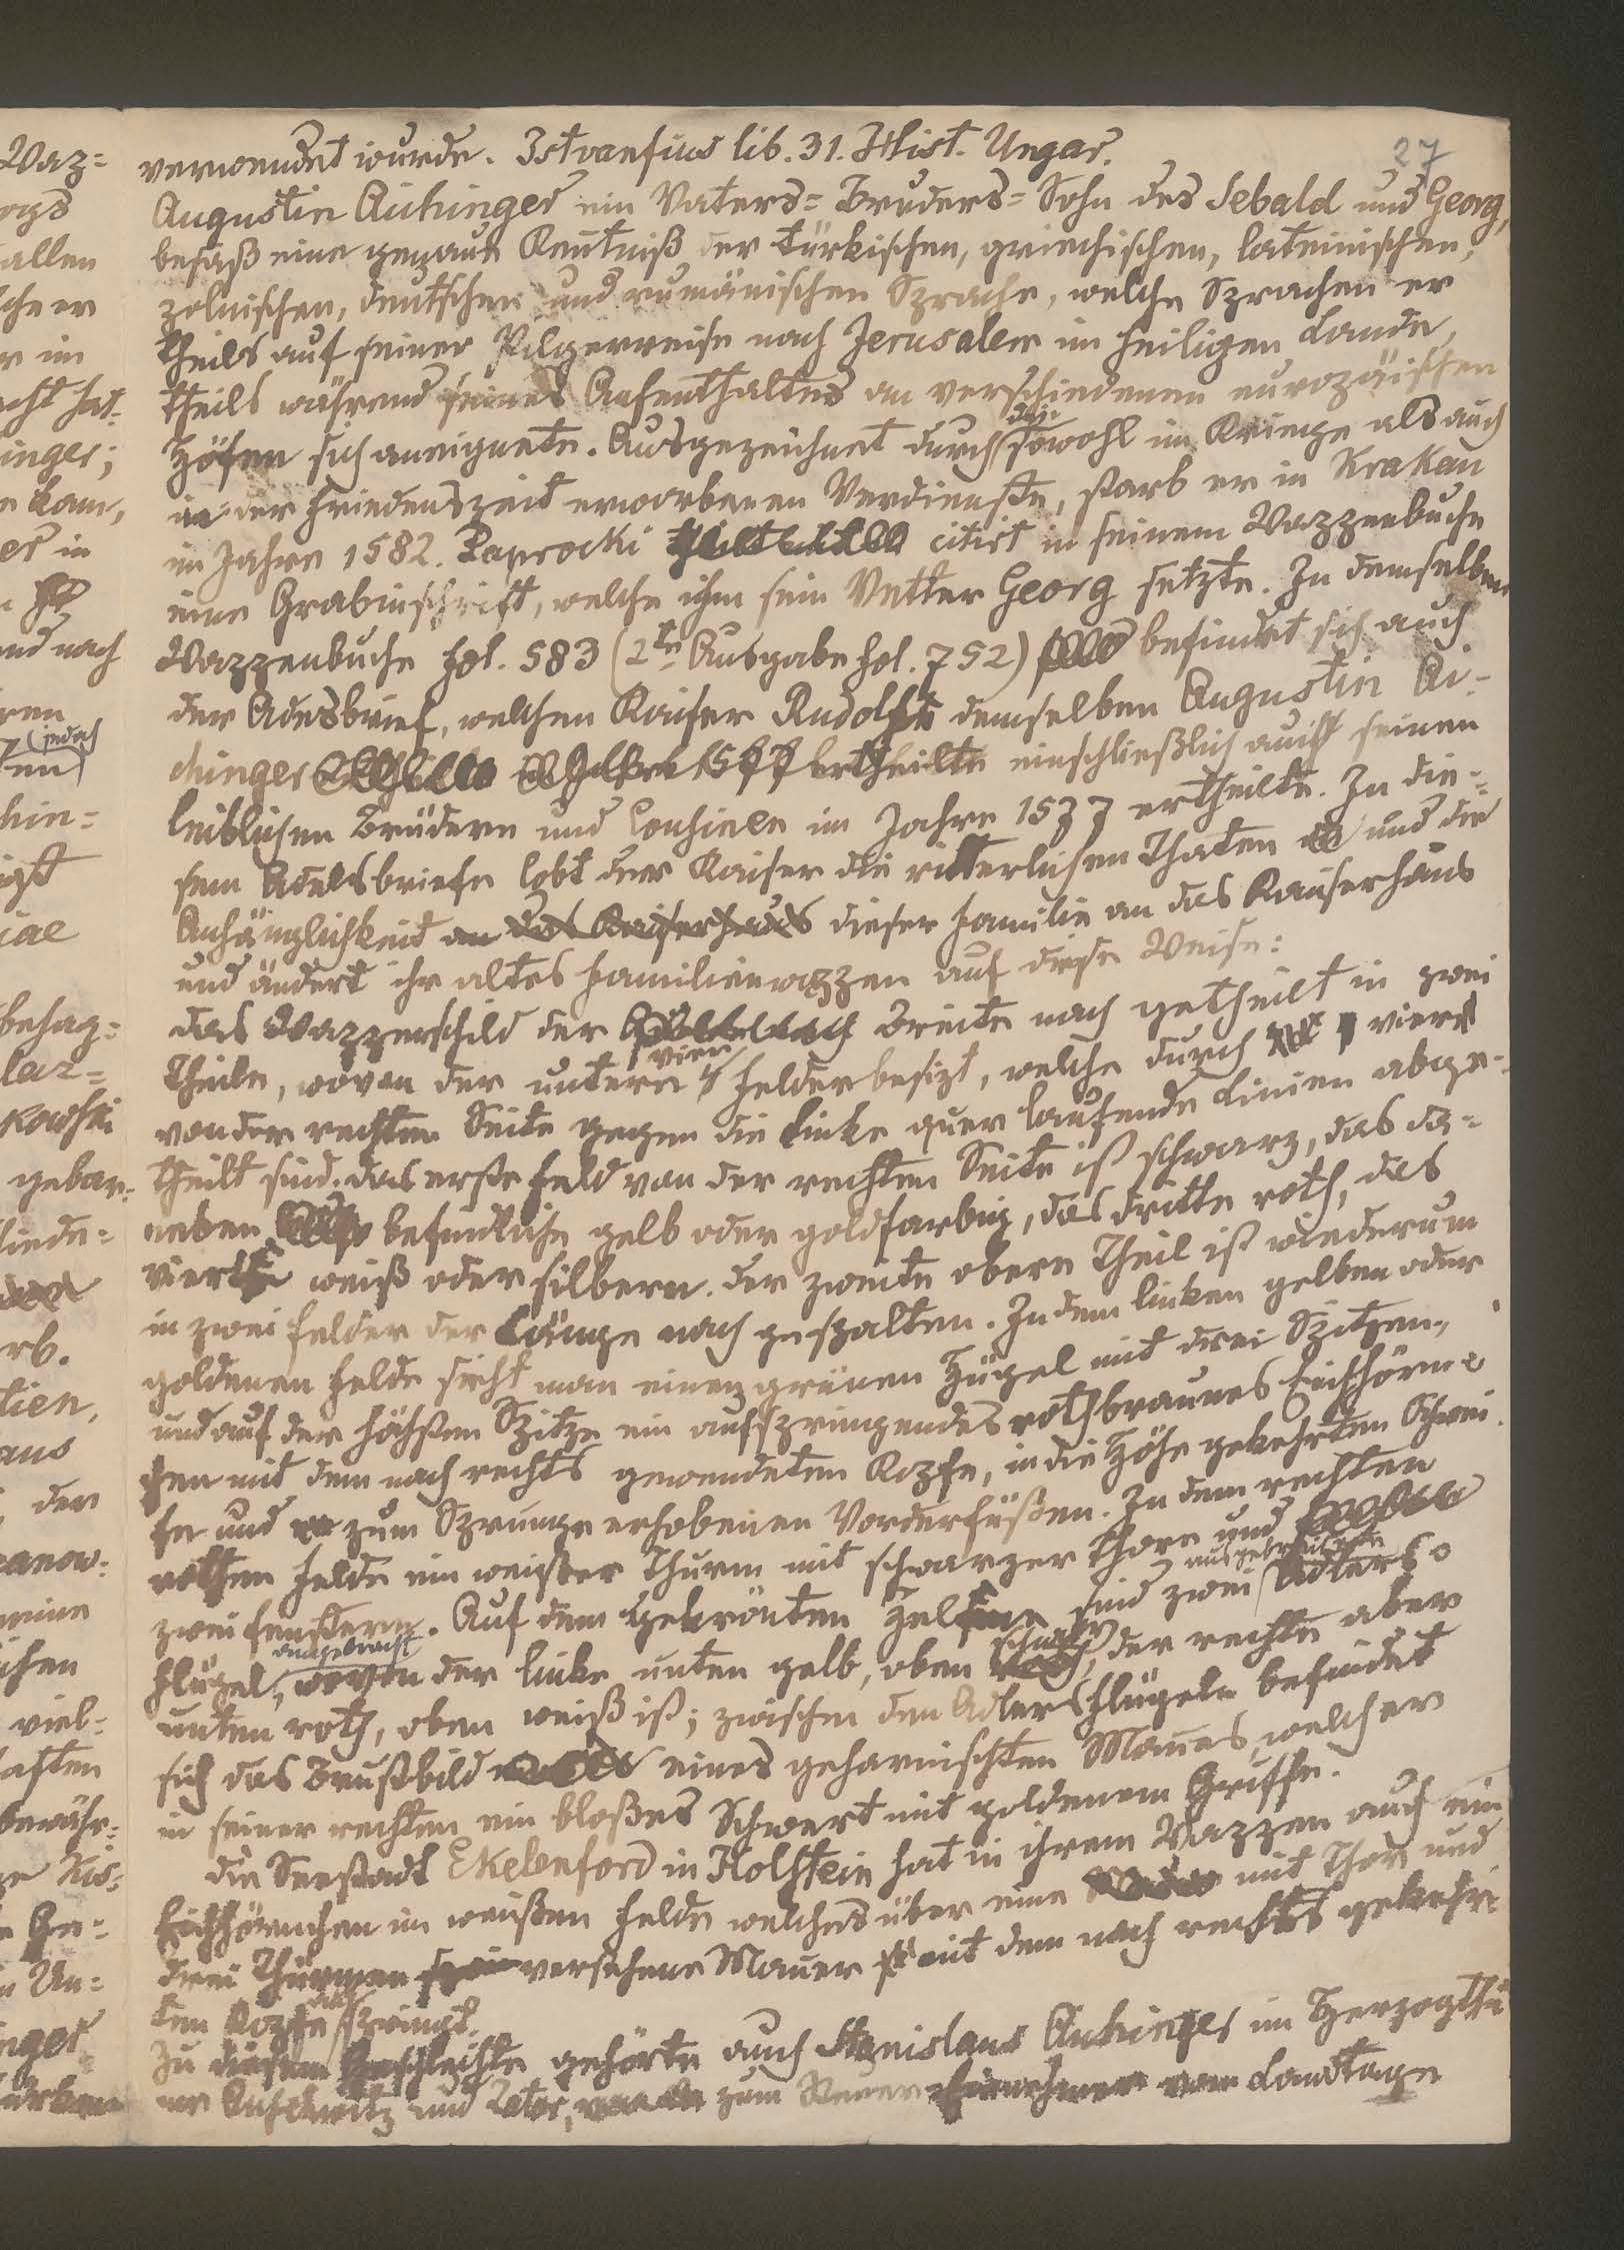 27
verwendet wurde. Istvanfius lib. 31. Hist. Ungar.
Augustin Aichinger ein Vaters-Bruders-Sohn des Sebald und Georg,
besaß eine genaue Kentniß der türkischen, griechischen, lateinischen,
polnischen, deutschen und rumänischen Sprache, welche Sprachen er
theils auf seiner Pilgerreise nach Jerusalem im heiligen Lande,
theils während seines Aufenthaltes an verschiedenen europäischen
Höfen sich aneignete. Ausgezeichnet durch die sowohl im Kriege als auch
in der Friedenszeit erworbenen Verdienste, starb er in Krakau
im Jahre 1582. Paprocki citirt in seinem Wappenbuche
eine Grabinschrift, welche ihm sein Vetter Georg setzte. In demselben
Wappenbuche fol. 583 (2te Ausgabe fol. 752) befindet sich auch
der Adelsbrief, welchen Kaiser Rudolf demselben Augustin Ai-
chinger im Jahre 1577 ertheilte einschließlich auch seinen
leiblichen Brüdern und Cousinen im Jahre 1577 ertheilte. In die-
sem Adelsbriefe lobt der Kaiser die ritterlichen Thaten und die
Anhänglichkeit an das Kaiserhaus dieser Familie an das Kaiserhaus
und ändert ihr altes Familienwappen auf diese Weise:
das Wappenschild der Breite nach getheilt in zwei
Theile, wovon der untere vier Felder besizt, welche durch vier
von der rechten Seite gegen die linke quer laufende Linien abge-
theilt sind. das erste Feld von der rechten Seite ist schwarz, das da-
neben befindliche gelb oder goldfarbig, das dritte roth, das
vierte weiß oder silbern. der zweite obere Theil ist wiederum
in zwei Felder der Länge nach gespalten. In dem linken gelben oder
goldenen Felde sieht man einen grünen Hügel mit drei Spitzen,
und auf der höchsten Spitze ein aufspringendes rothbraunes Eichhörn-
chen mit dem nach rechts gewendeten Kopfe, in die Höhe gekehrten Schwei-
fe und zum Sprunge erhobenen Vorderfüßen. In dem rechten
rothen Felde ein weißer Thurm mit schwarzer Thore und
zwei Fenstern. Auf dem gekrönten Helme sind zwei ausgebreitete Adlers-
flügel angebracht, wovon der linke unten gelb, oben schwarz, der rechte aber
unten roth, oben weiß ist; zwischen den Adlersflügeln befindet
sich das Brustbild eines geharnischten Mannes, welcher
in seiner rechten ein bloßes Schwert mit goldenem Griffe.
die Seestadt Ekelenford in Holstein hat in ihrem Wappen auch ein
Eichhörnchen im weißen Felde welches über eine mit Thor und
drei Thürmen versehene Mauer mit dem nach rechts gekehr-
ten Kopfe springt.
Zu diesem Geschlechte gehörte auch Stanislaus Aichinger im Herzogthu-
me Auschwitz und Zator, zum Steuer Einnehmer vom Landtage